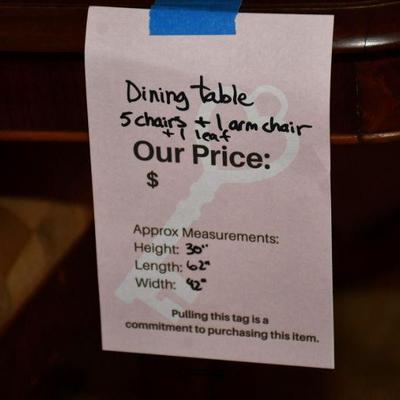 Dining table
5 chairs + 1 arm chair
+ 1 leaf
Our Price:
$
Approx Measurements:
Height: 30"
Length: 62"
Width: 42"
Pulling this tag is a
commitment to purchasing this item.